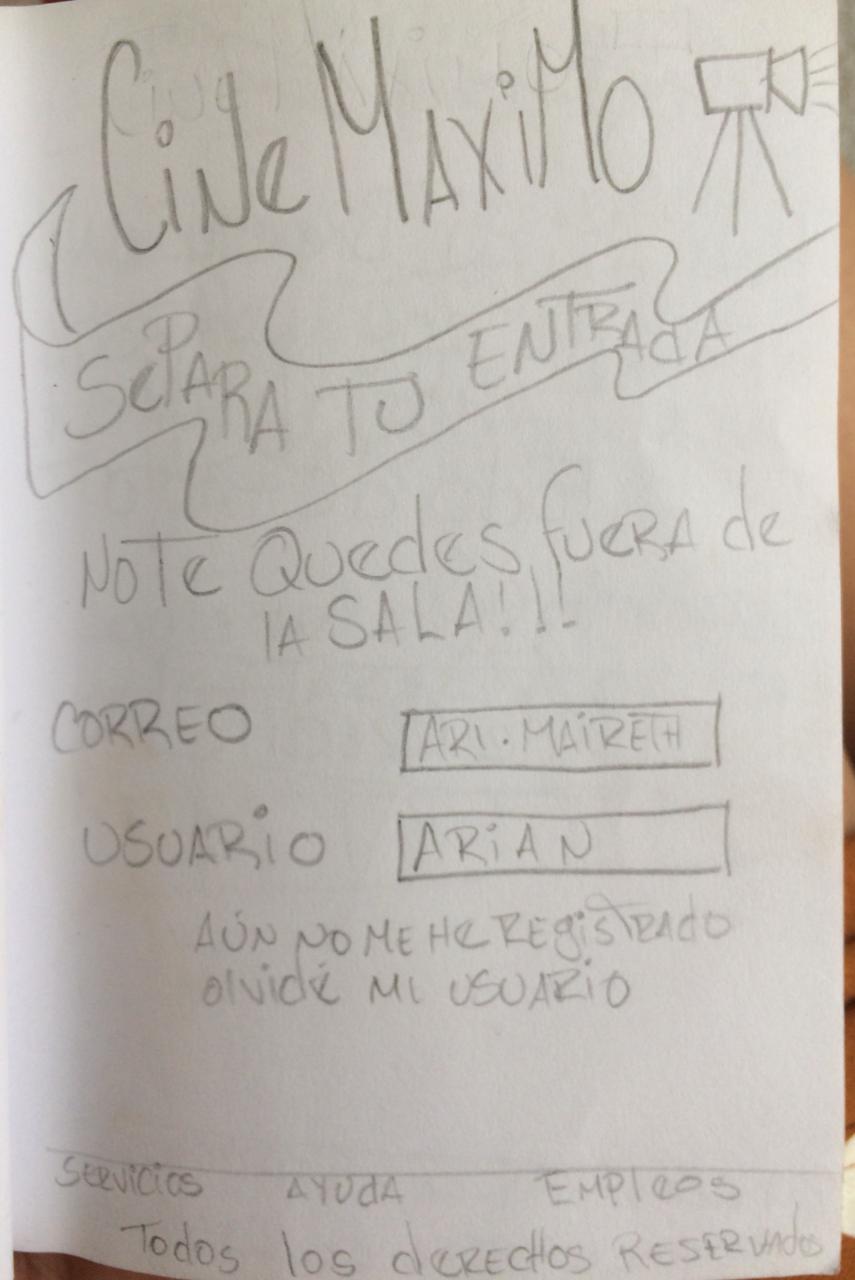 CiNe MAXiMO
SePARA TU ENTRAdA
NO Te Quedes fUeRA de
lA SALA!!!
CORREO
ARI.MAiRETH
USUARiO
ARiAN
AÚN NO ME He RegisTRAdO
olvidé MI USUARiO
Servicios AYUdA EMPleos
Todos los deRechos ReSeRVAdos